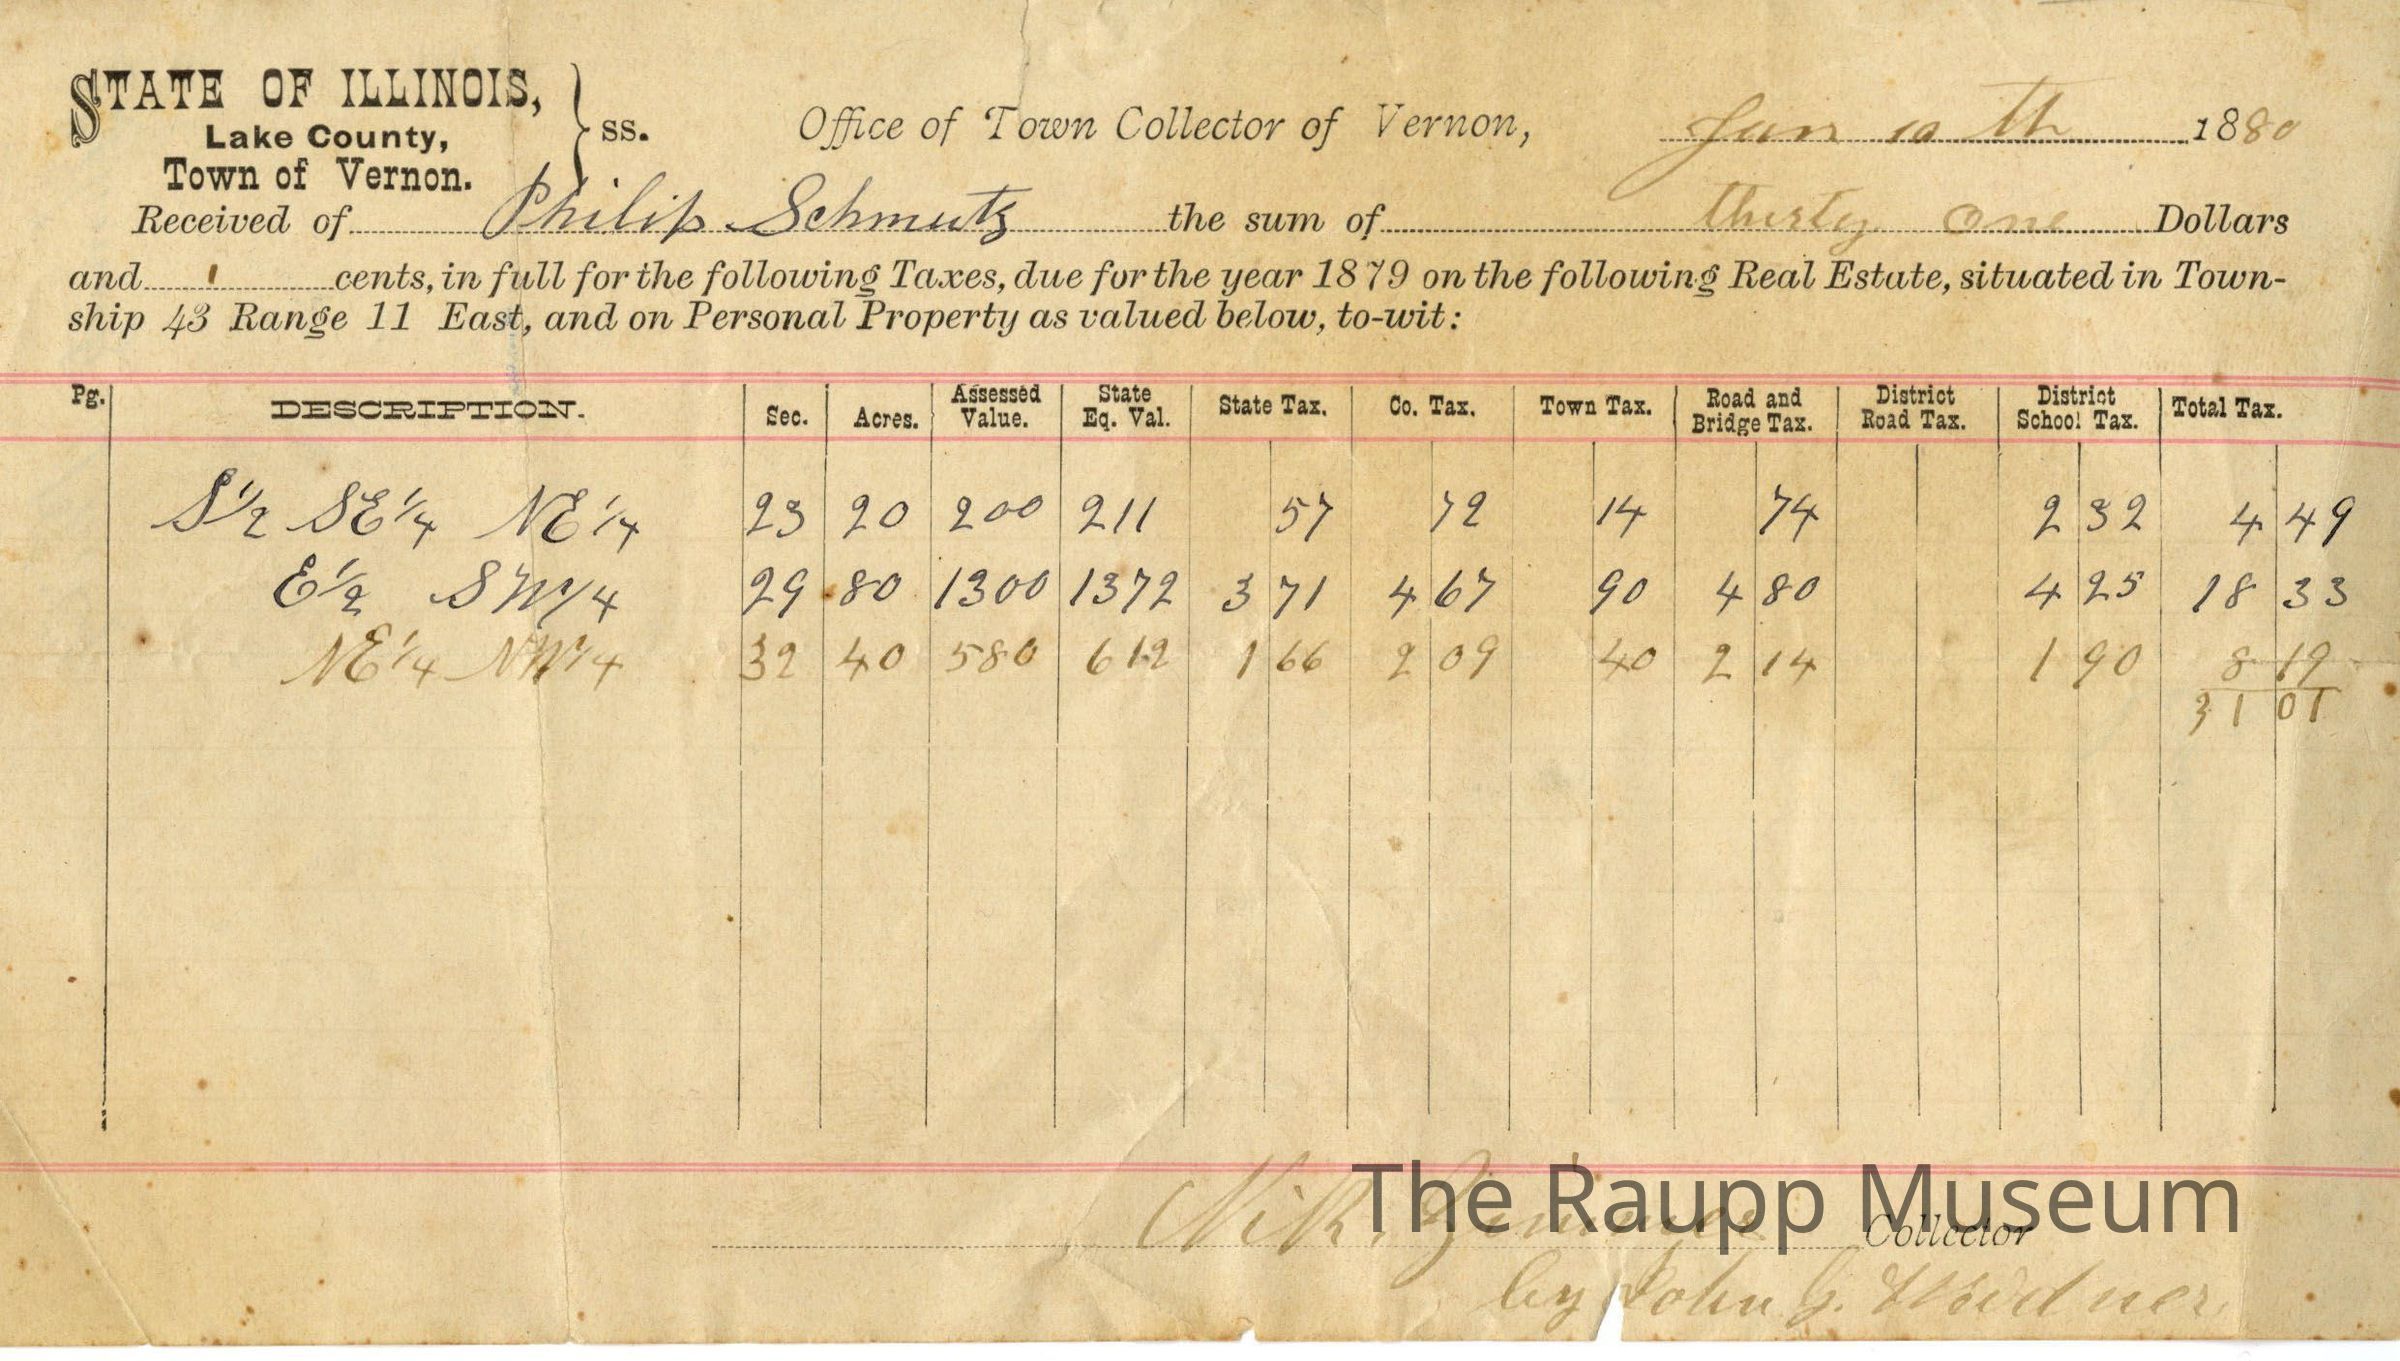 STATE OF ILLINOIS,
Lake County,
Town of Vernon.
ss.
Office of Town Collector of Vernon, Jan 10 th 1880
Received of Philip Schmutz the sum of thirty one Dollars
and 1 cents, in full for the following Taxes, due for the year 1879 on the following Real Estate, situated in Town-
ship 43 Range 11 East, and on Personal Property as valued below, to-wit:
Pg. DESCRIPTION. Sec. Acres. Assessed Value. State Eq. Val. State Tax. Co. Tax. Town Tax. Road and Bridge Tax. District Road Tax. District School Tax. Total Tax.
S 1/2 SE 1/4 NE 1/4 23 20 200 211 57 72 14 74 2 32 4 49
E 1/2 SW 1/4 29 80 1300 1372 3 71 4 67 90 4 80 4 25 18 33
NE 1/4 NW 1/4 32 40 580 612 1 66 2 09 40 2 14 1 90 8 19
31 01
The Raupp Museum
Nik. Collector
by John G. Weidner